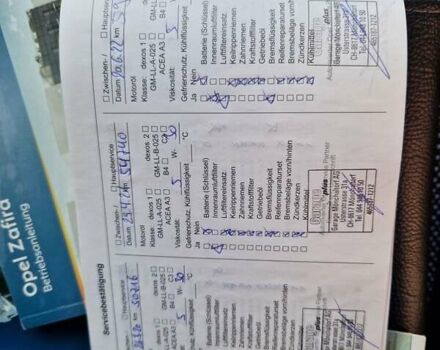 Opel Zafira
Betriebsanleitung
Servicebestätigung
□ Zwischen- / □ Hauptservice
Datum km 50716
Motoröl
Klasse: dexos 1 □ dexos 2 □
GM-LL-A-025 □ GM-LL-B-025 □
ACEA A3 □ B4 □ C3
Viskosität: 5 W- 30
Gefrierschutz, Kühlflüssigkeit °C
Ja Nein
Batterie (Schlüssel)
Innenraumluftfilter
Luftfiltereinsatz
Keilrippenriemen
Zahnriemen
Kraftstofffilter
Getriebeöl
Bremsflüssigkeit
Reifenreparaturset
Bremsbeläge vorn/hinten
Zündkerzen
Kühlmittel
Garage plus
Garage Mönchaldorf AG
Usterstrasse 31a
CH-8617 Mönchaldorf
□ Zwischen- / □ Hauptservice
Datum km 54140
Motoröl
Klasse: dexos 1 □ dexos 2 □
GM-LL-A-025 □ GM-LL-B-025 □
ACEA A3 □ B4 □ C3
Viskosität: 5 W- 30
Gefrierschutz, Kühlflüssigkeit °C
Ja Nein
Batterie (Schlüssel)
Innenraumluftfilter
Luftfiltereinsatz
Keilrippenriemen
Zahnriemen
Kraftstofffilter
Getriebeöl
Bremsflüssigkeit
Reifenreparaturset
Bremsbeläge vorn/hinten
Zündkerzen
Kühlmittel
Garage plus
Garage Mönchaldorf AG
Usterstrasse 31a
CH-8617 Mönchaldorf
Tel. 044 948 10 50
465187-1212
□ Zwischen- / □ Hauptservice
Datum 20.6.22 km
Motoröl
Klasse: dexos 1 □
GM-LL-A-025 □
ACEA A3 □ B4 □
Viskosität: 5
Gefrierschutz, Kühlflüssigkeit
Ja Nein
Batterie (Schlüssel)
Innenraumluftfilter
Luftfiltereinsatz
Keilrippenriemen
Zahnriemen
Kraftstofffilter
Getriebeöl
Bremsflüssigkeit
Reifenreparaturset
Bremsbeläge vorn/hinten
Zündkerzen
Kühlmittel
Garage plus
Garage Mönchaldorf AG
Usterstrasse 31a
CH-8617 Mönchaldorf
Tel. 044 948 10 50
465187-1212